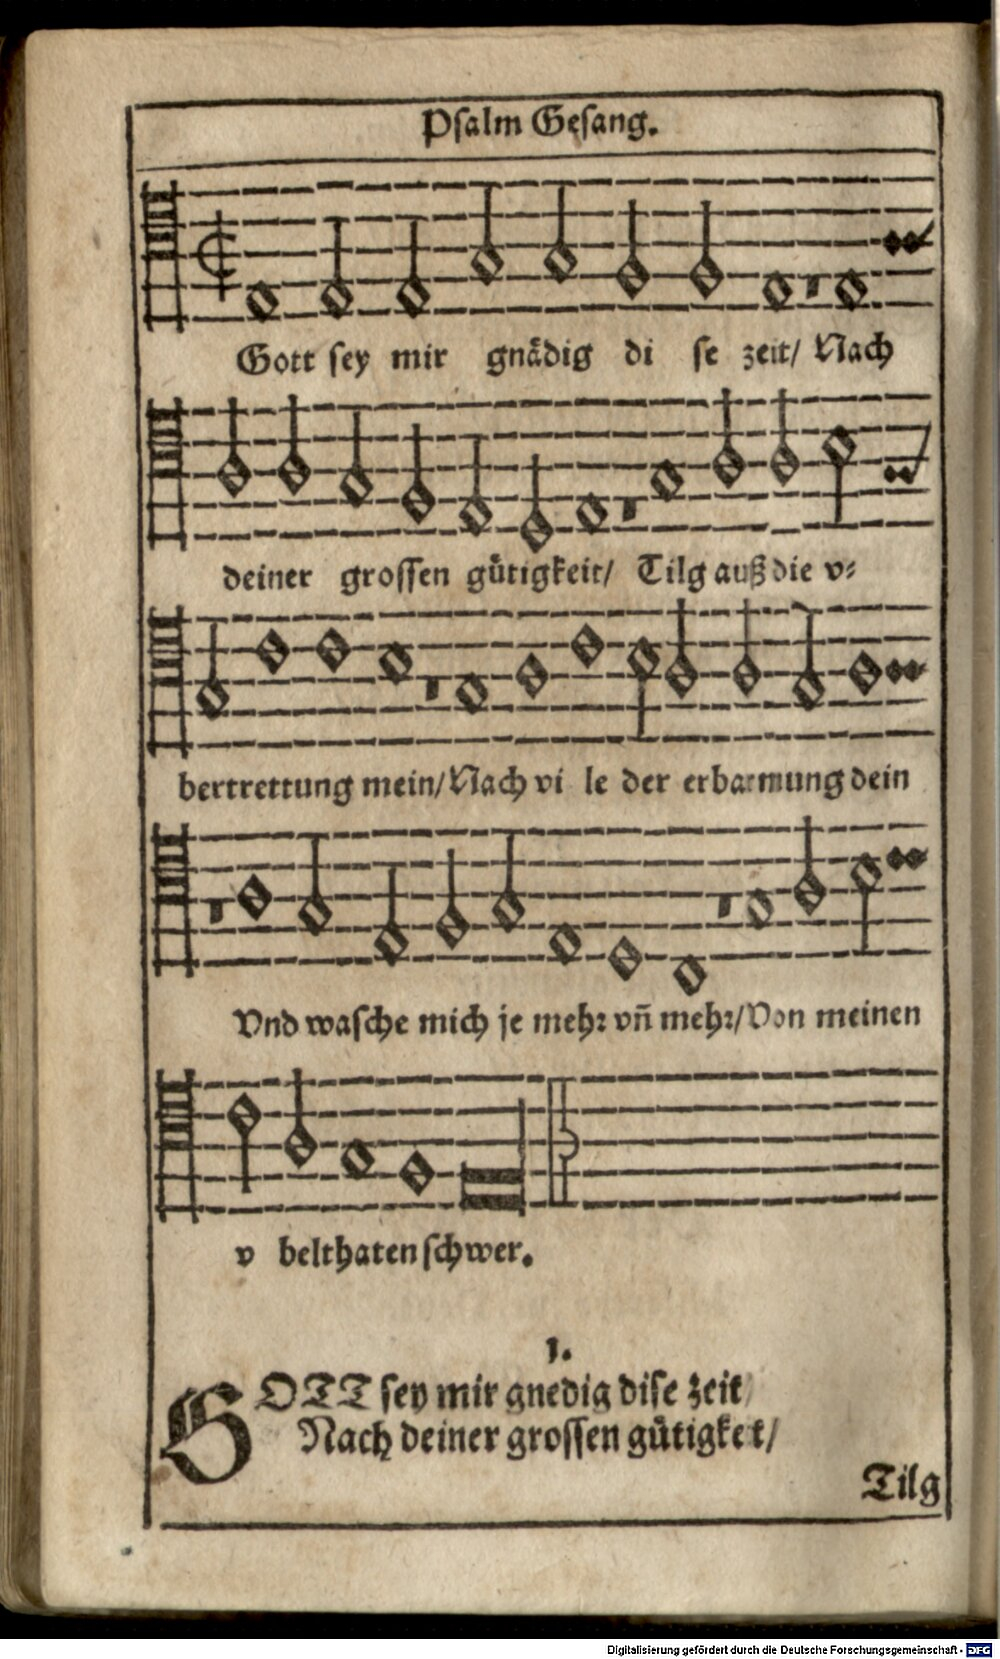 Psalm Gesang.
Gott sey mir gnådig di se zeit/ Nach
deiner grossen gůtigkeit/ Tilg auß die v⸗
bertrettung mein/ Nach vi le der erbarmung dein
Vnd wasche mich je mehr vñ mehr/ Von meinen
v belthaten schwer.
1.
GOTT sey mir gnedig dise zeit
Nach deiner grossen gůtigket/
Tilg
Digitalisierung gefördert durch die Deutsche Forschungsgemeinschaft - DFG